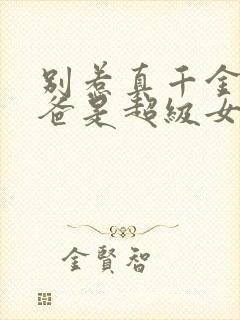 别惹真千金
爸是超级女
金賢智